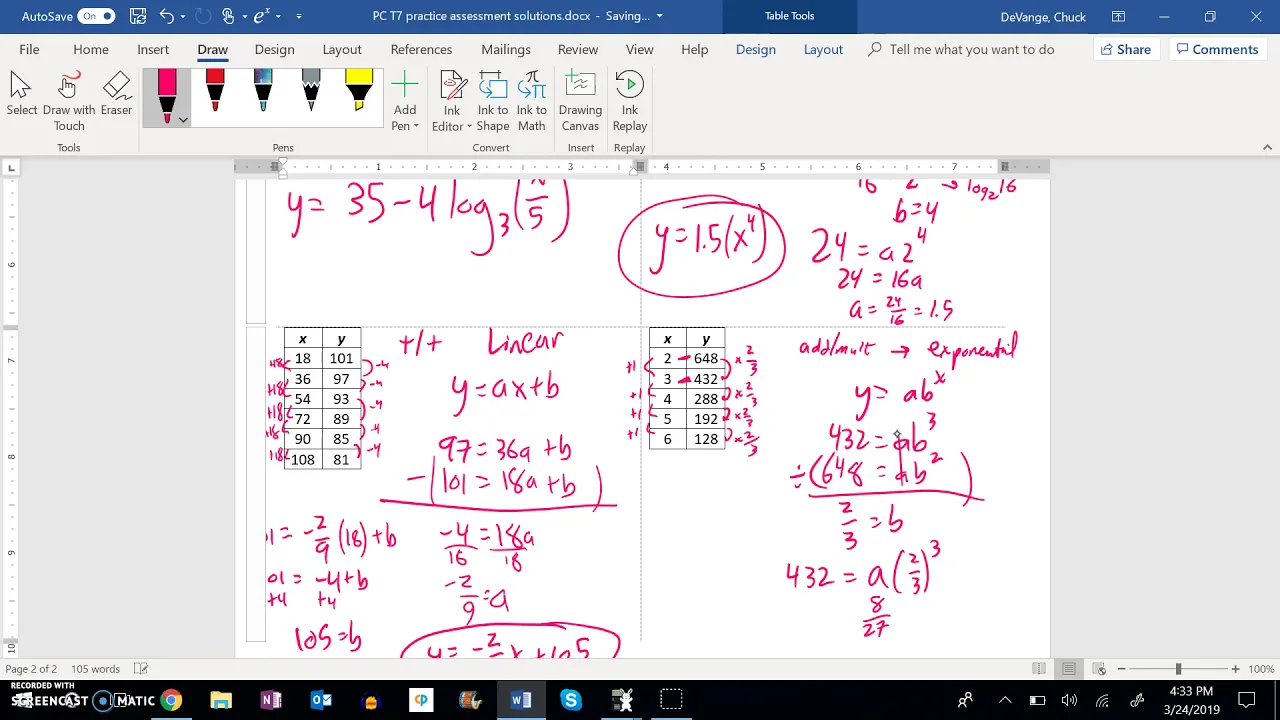 AutoSave On
PC T7 practice assessment solutions.docx - Saving...
Table Tools
DeVange, Chuck
File Home Insert Draw Design Layout References Mailings Review View Help Design Layout Tell me what you want to do Share Comments
Select Draw with Touch Eraser Add Pen Ink Editor Ink to Shape Ink to Math Drawing Canvas Ink Replay
Tools Pens Convert Insert Replay
1 2 3 4 5 6 7
y = 35 - 4 log₃(x/5)
y = 1.5(x⁴)
16 2 → log₂16
b = 4
24 = a2⁴
24 = 16a
a = 24/16 = 1.5
x y
18 101
36 97
54 93
72 89
90 85
108 81
+18 +18 +18 +18 +18
-4 -4 -4 -4 -4
+/+ Linear
y = ax + b
97 = 36a + b
-(101 = 18a + b)
-4/16 = 18a/18
-2/9 = a
01 = -2/9 (18) + b
01 = -4 + b
+4 +4
105 = b
y = -2/ x + 105
x y
2 648
3 432
4 288
5 192
6 128
+1 +1 +1 +1
×2/3 ×2/3 ×2/3 ×2/3
add/mult → exponential
y = abˣ
432 = ab³
÷(648 = ab²)
2/3 = b
432 = a(2/3)³
8/27
6
7
8
9
10
Page 2 of 2 105 words
100%
RECORDED WITH
SCREENCAST MATIC
4:33 PM
3/24/2019